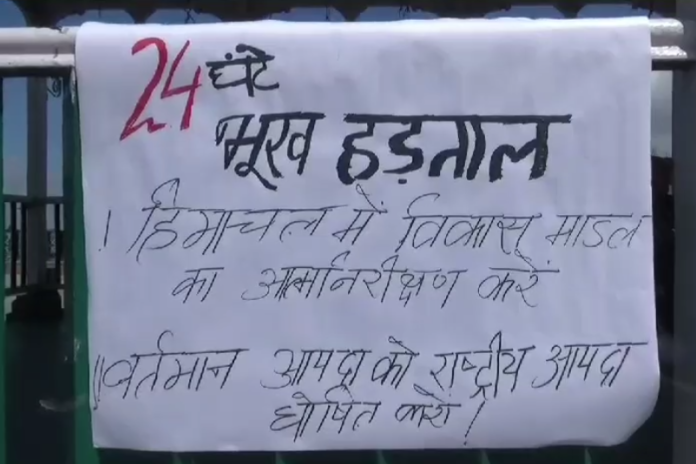 24 घंटे
भूख हड़ताल
। हिमाचल में विकास माडल
का आत्मनिरीक्षण करें
॥ वर्तमान आपदा को राष्ट्रीय आपदा
घोषित करो !